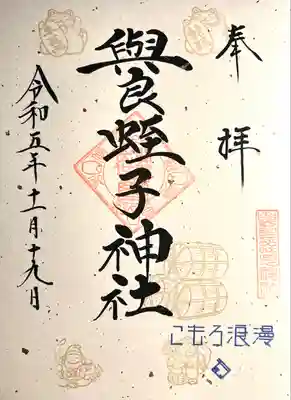 奉拝
與良蛭子神社
令和五年十一月十九日
こもろ浪漫